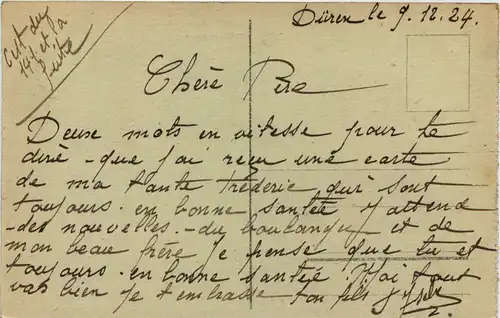 Düren le 9.12.24.
C'est du
14 et j'a
suite
Chère Père
Deuse mots en vitesse pour te
diré - que j'ai reçu une carte
de ma tante Fréderic qui sont
toujours en bonne santée j'attend
- des nouvelles - du et de
mon beau frère je pense que tu et
toujours en bonne santéé. Moi tout
vas bien je t'embrasse ton fils